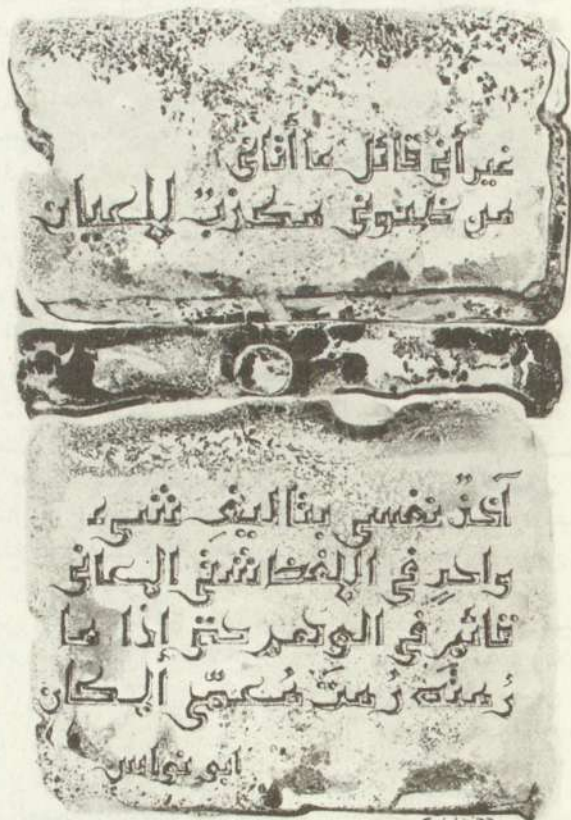 غير أني قائل ما أتاني
من ظنوني مكذبٌ للعيان
آخذٌ نفسي بتأليف شيء
واحدٍ في اللفظ شتى المعاني
قائمٍ في الوهم حتى إذا ما
رُمتُه رُمتُ مُعمّى المكان
ابو نواس